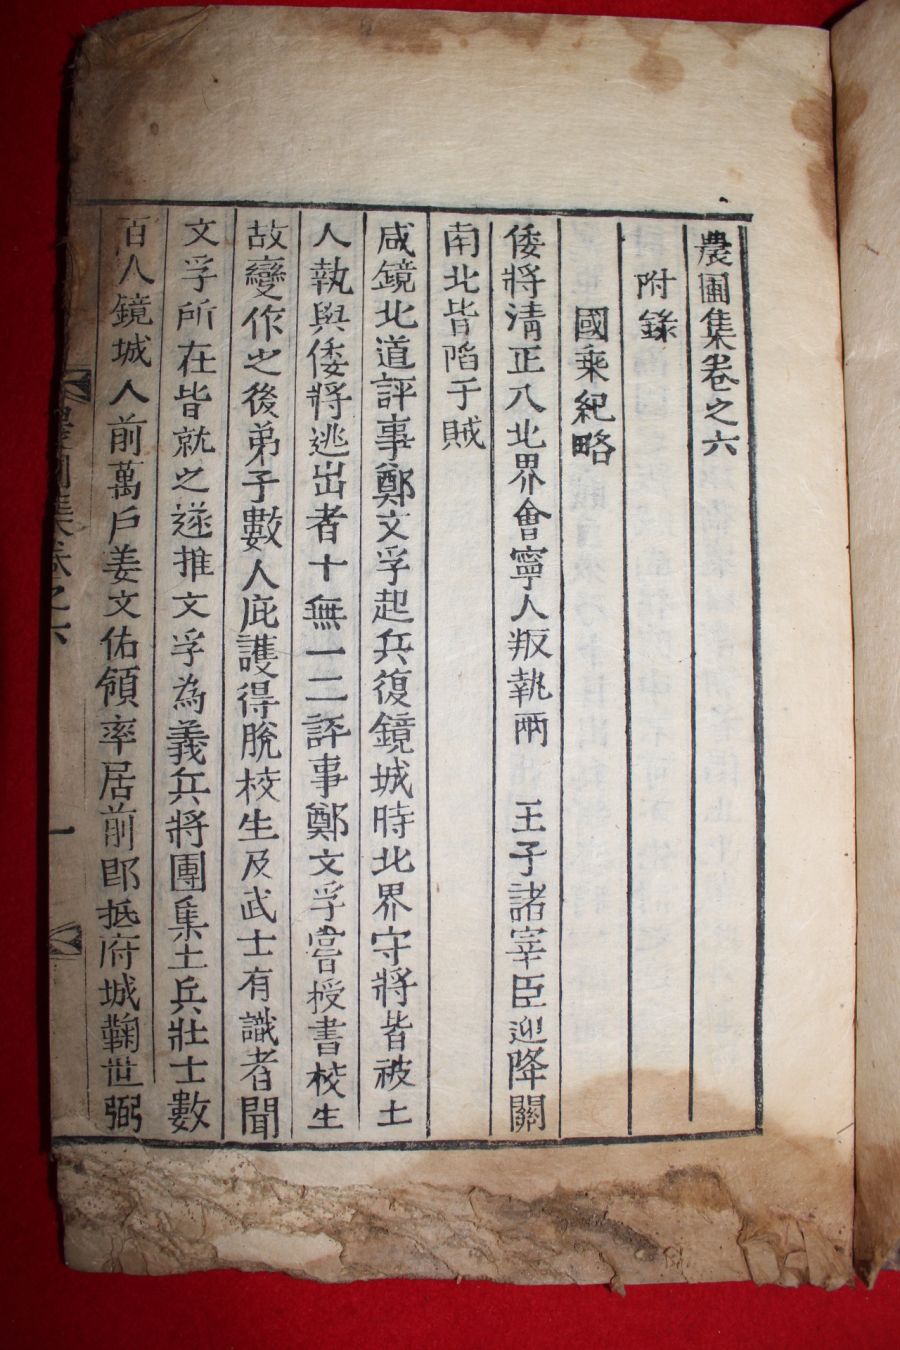 農圃集卷之六
附錄
國乘紀略
倭將淸正入北界會寧人叛執兩　王子諸宰臣迎降關
南北皆陷于賊
咸鏡北道評事鄭文孚起兵復鏡城時北界守將皆被土
人執與倭將逃出者十無一二評事鄭文孚嘗授書校生
故變作之後弟子數人庇護得脫校生及武士有識者聞
文孚所在皆就之遂推文孚為義兵將團集土兵壯士數
百入鏡城人前萬戶姜文佑領率居前郎抵府城鞠世弼
農圃集卷之六
一